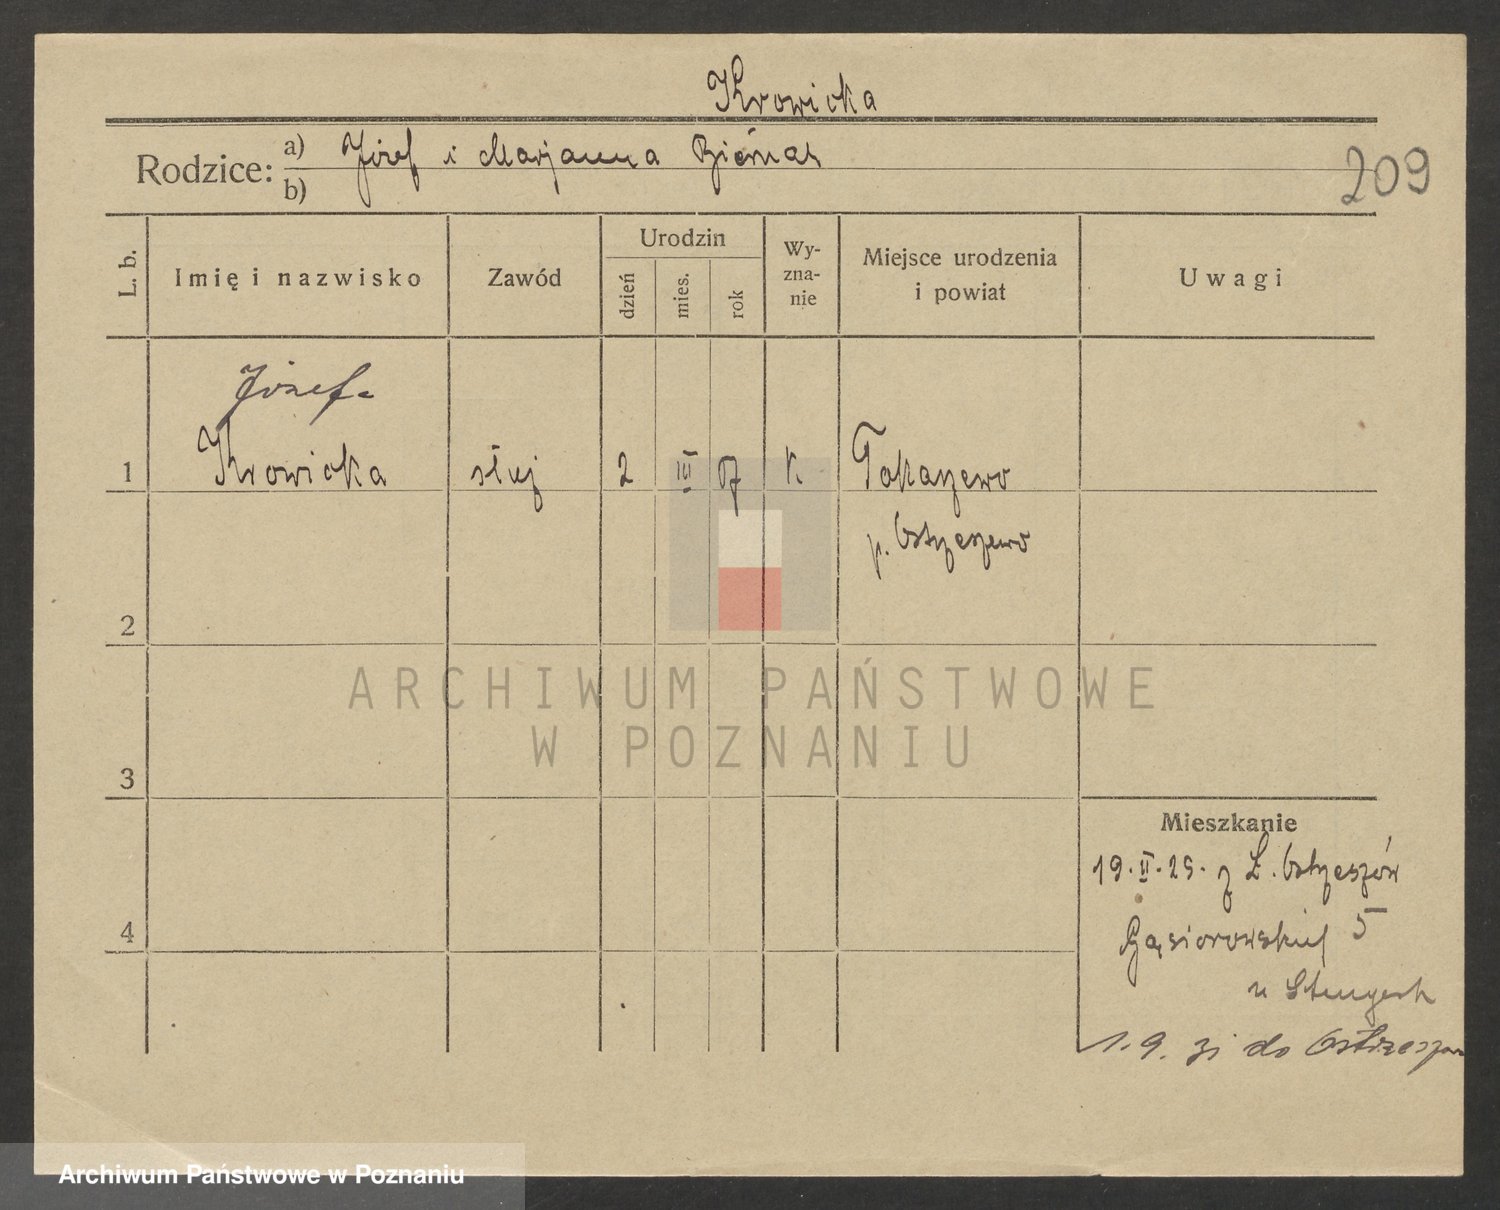 Krowicka
Rodzice: a) Józef i Marjanna Bieniak
b)
209
L. b.
Imię i nazwisko
Zawód
Urodzin
dzień
mies.
rok
Wy-
zna-
nie
Miejsce urodzenia
i powiat
Uwagi
Józefa
1 Krowicka służ 2 III 07 k. Tokarzewo
p. Ostrzeszewo
2
3
4
Mieszkanie
19.II.25. z Ł. Ostrzeszów
Gąsiorowskich 5
u
1.9. zi do Ostrzeszowa
ARCHIWUM PAŃSTWOWE
W POZNANIU
Archiwum Państwowe w Poznaniu